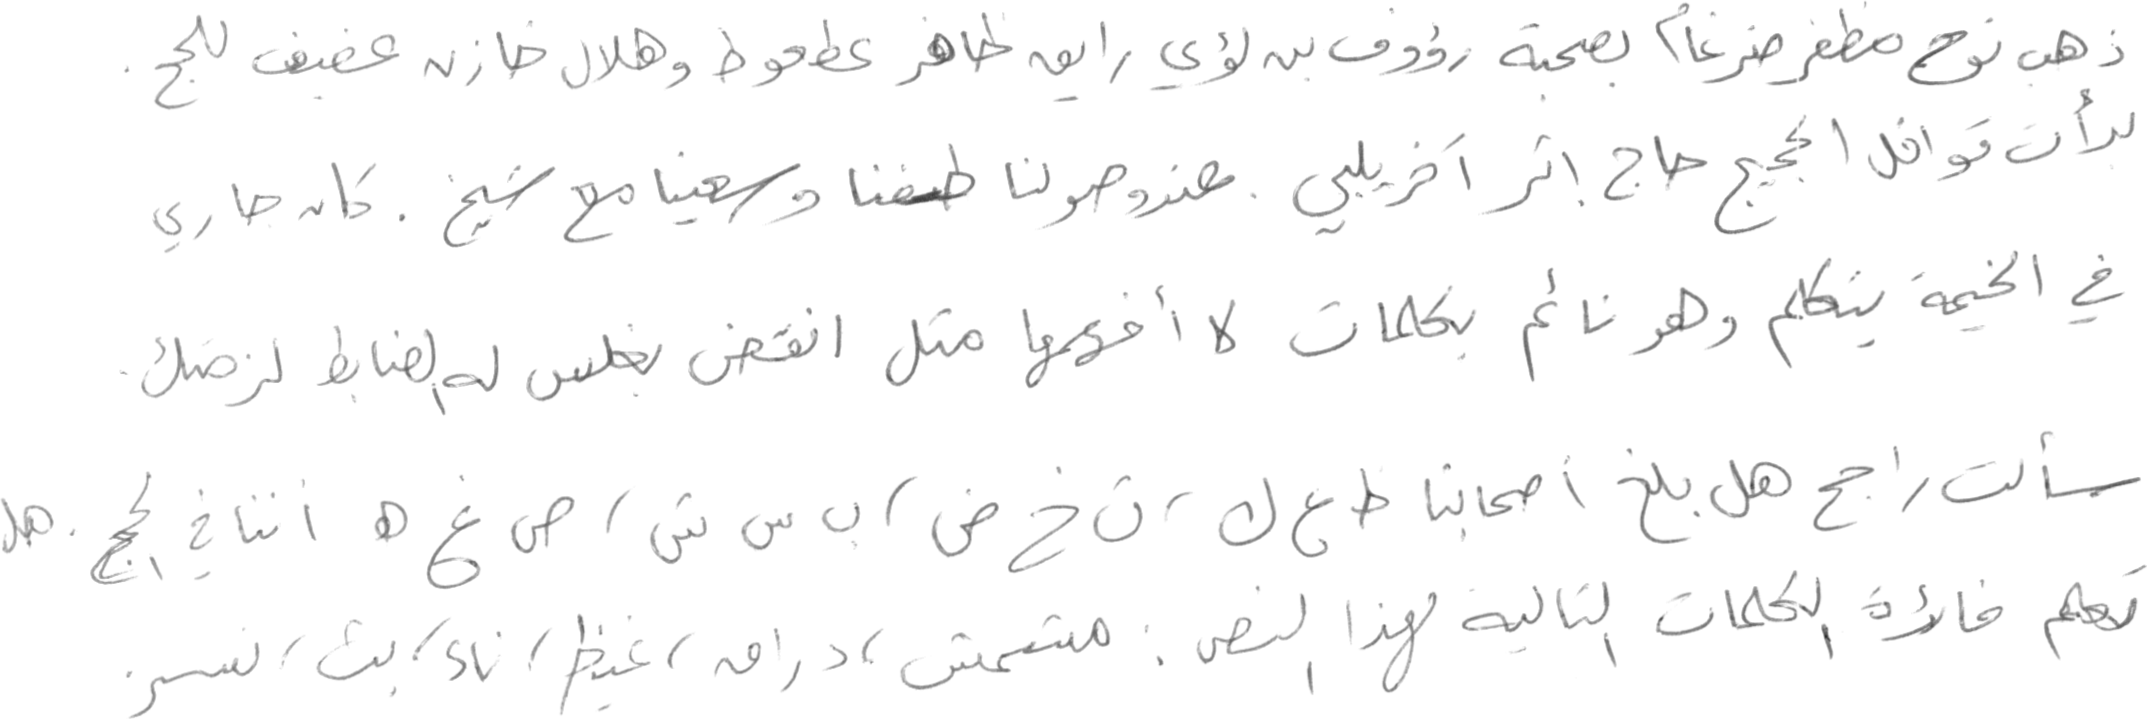 ذهب نوح مظفر ضرغام بصحبة رؤوف بن لؤي رايق ظافر عطعوط وهلال خازن عفيف للحج .
بدأت قوافل الحجيج حاج إثر آخر يلبي . عند وصولنا طفنا وسعينا مع شيخ . كان جاري
في الخيمة يتكلم وهو نائم بكلمات لا أفهمها مثل انقض بغلس له الضابط لزضك .
سألت راجح هل بلغ أصحابنا ظ ع ك ، ث خ ض ، ب س ش ، ص غ ه أننا في الحج . هل
تعلم فائدة الكلمات التالية لهذا النص : مشمش ، دراق ، غيظ ، ناي ، بث ، نسر .